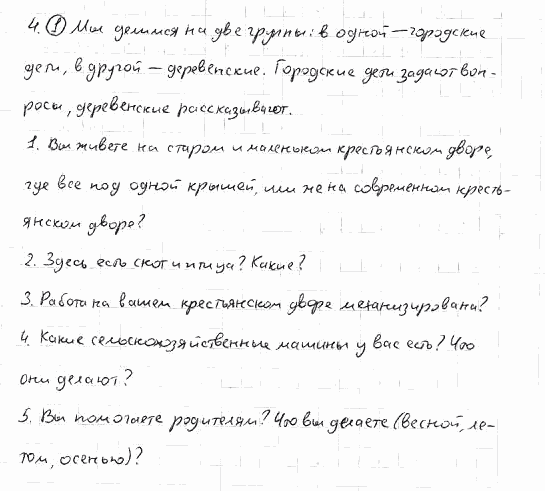 4. ① Мы делимся на две группы: в одной — городские
дети, в другой — деревенские. Городские дети задают воп-
росы, деревенские рассказывают.
1. Вы живете на старом и маленьком крестьянском дворе,
где все под одной крышей, или же на современном кресть-
янском дворе?
2. Здесь есть скот и птица? Какие?
3. Работа на вашем крестьянском дворе механизирована?
4. Какие сельскохозяйственные машины у вас есть? Что
они делают?
5. Вы помогаете родителям? Что вы делаете (весной, ле-
том, осенью)?